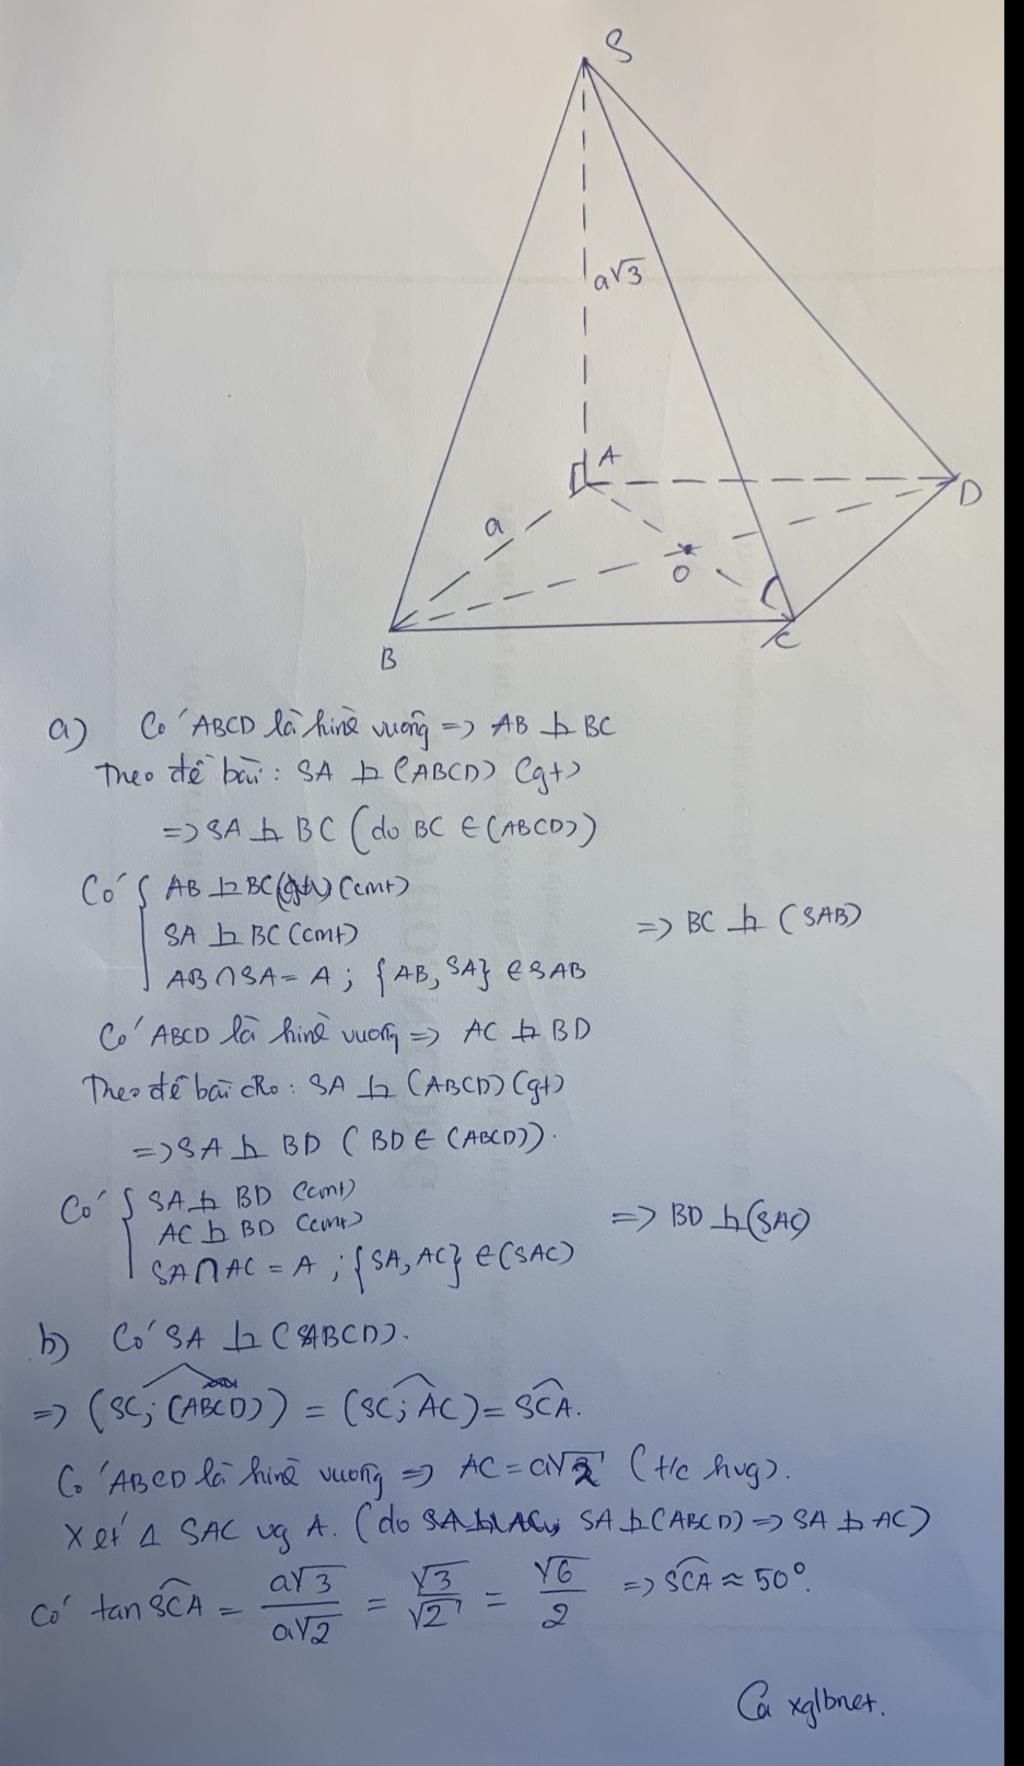 S
a√3
A
D
a
O
B
C
a) Có ABCD là hình vuông => AB ⊥ BC
Theo đề bài: SA ⊥ (ABCD) (gt)
=> SA ⊥ BC (do BC ∈ (ABCD))
Có { AB ⊥ BC (cmt)
SA ⊥ BC (cmt)
AB ∩ SA = A ; {AB, SA} ∈ SAB
=> BC ⊥ (SAB)
Có ABCD là hình vuông => AC ⊥ BD
Theo đề bài cho: SA ⊥ (ABCD) (gt)
=> SA ⊥ BD (BD ∈ (ABCD)).
Có { SA ⊥ BD (cmt)
AC ⊥ BD (cmt)
SA ∩ AC = A ; {SA, AC} ∈ (SAC)
=> BD ⊥ (SAC)
b) Có SA ⊥ (ABCD).
=> (SC; (ABCD)) = (SC; AC) = SCA.
Có ABCD là hình vuông => AC = a√2 (t/c hvg).
Xét Δ SAC vg A. (do SA ⊥ (ABCD) => SA ⊥ AC)
Có tan SCA = a√3 / a√2 = √3 / √2 = √6 / 2 => SCA ≈ 50°.